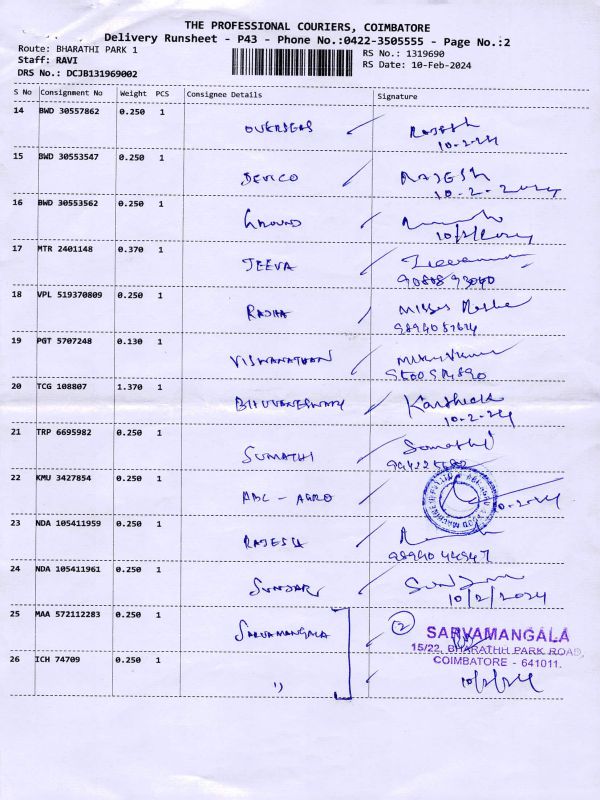 THE PROFESSIONAL COURIERS, COIMBATORE
Delivery Runsheet - P43 - Phone No.:0422-3505555 - Page No.:2
Route: BHARATHI PARK 1
RS No.: 1319690
Staff: RAVI
RS Date: 10-Feb-2024
DRS No.: DCJB131969002
S No Consignment No Weight PCS Consignee Details Signature
14 BWD 30557862 0.250 1 OVERSEAS Rajesh
10-2-24
15 BWD 30553547 0.250 1 DEVICO RAJESH
10-2-2024
16 BWD 30553562 0.250 1 GROUND
10/2/2024
17 MTR 2401148 0.370 1 JEEVA
18 VPL 519370809 0.250 1 RADHA
19 PGT 5707248 0.130 1 VISWANATHAN
20 TCG 108807 1.370 1 BHUVANESWARY Karthick
10-2-24
21 TRP 6695982 0.250 1 SUMATHI Sumathi
22 KMU 3427854 0.250 1 ABL - AGRO
10-2-24
23 NDA 105411959 0.250 1 RAJESH
24 NDA 105411961 0.250 1 SUNDAR
10/2/2024
25 MAA 572112283 0.250 1 SARVAMANGALA 2 SARVAMANGALA
15/22, BHARATHI PARK ROAD,
COIMBATORE - 641011.
26 ICH 74709 0.250 1 ")
10/2/24